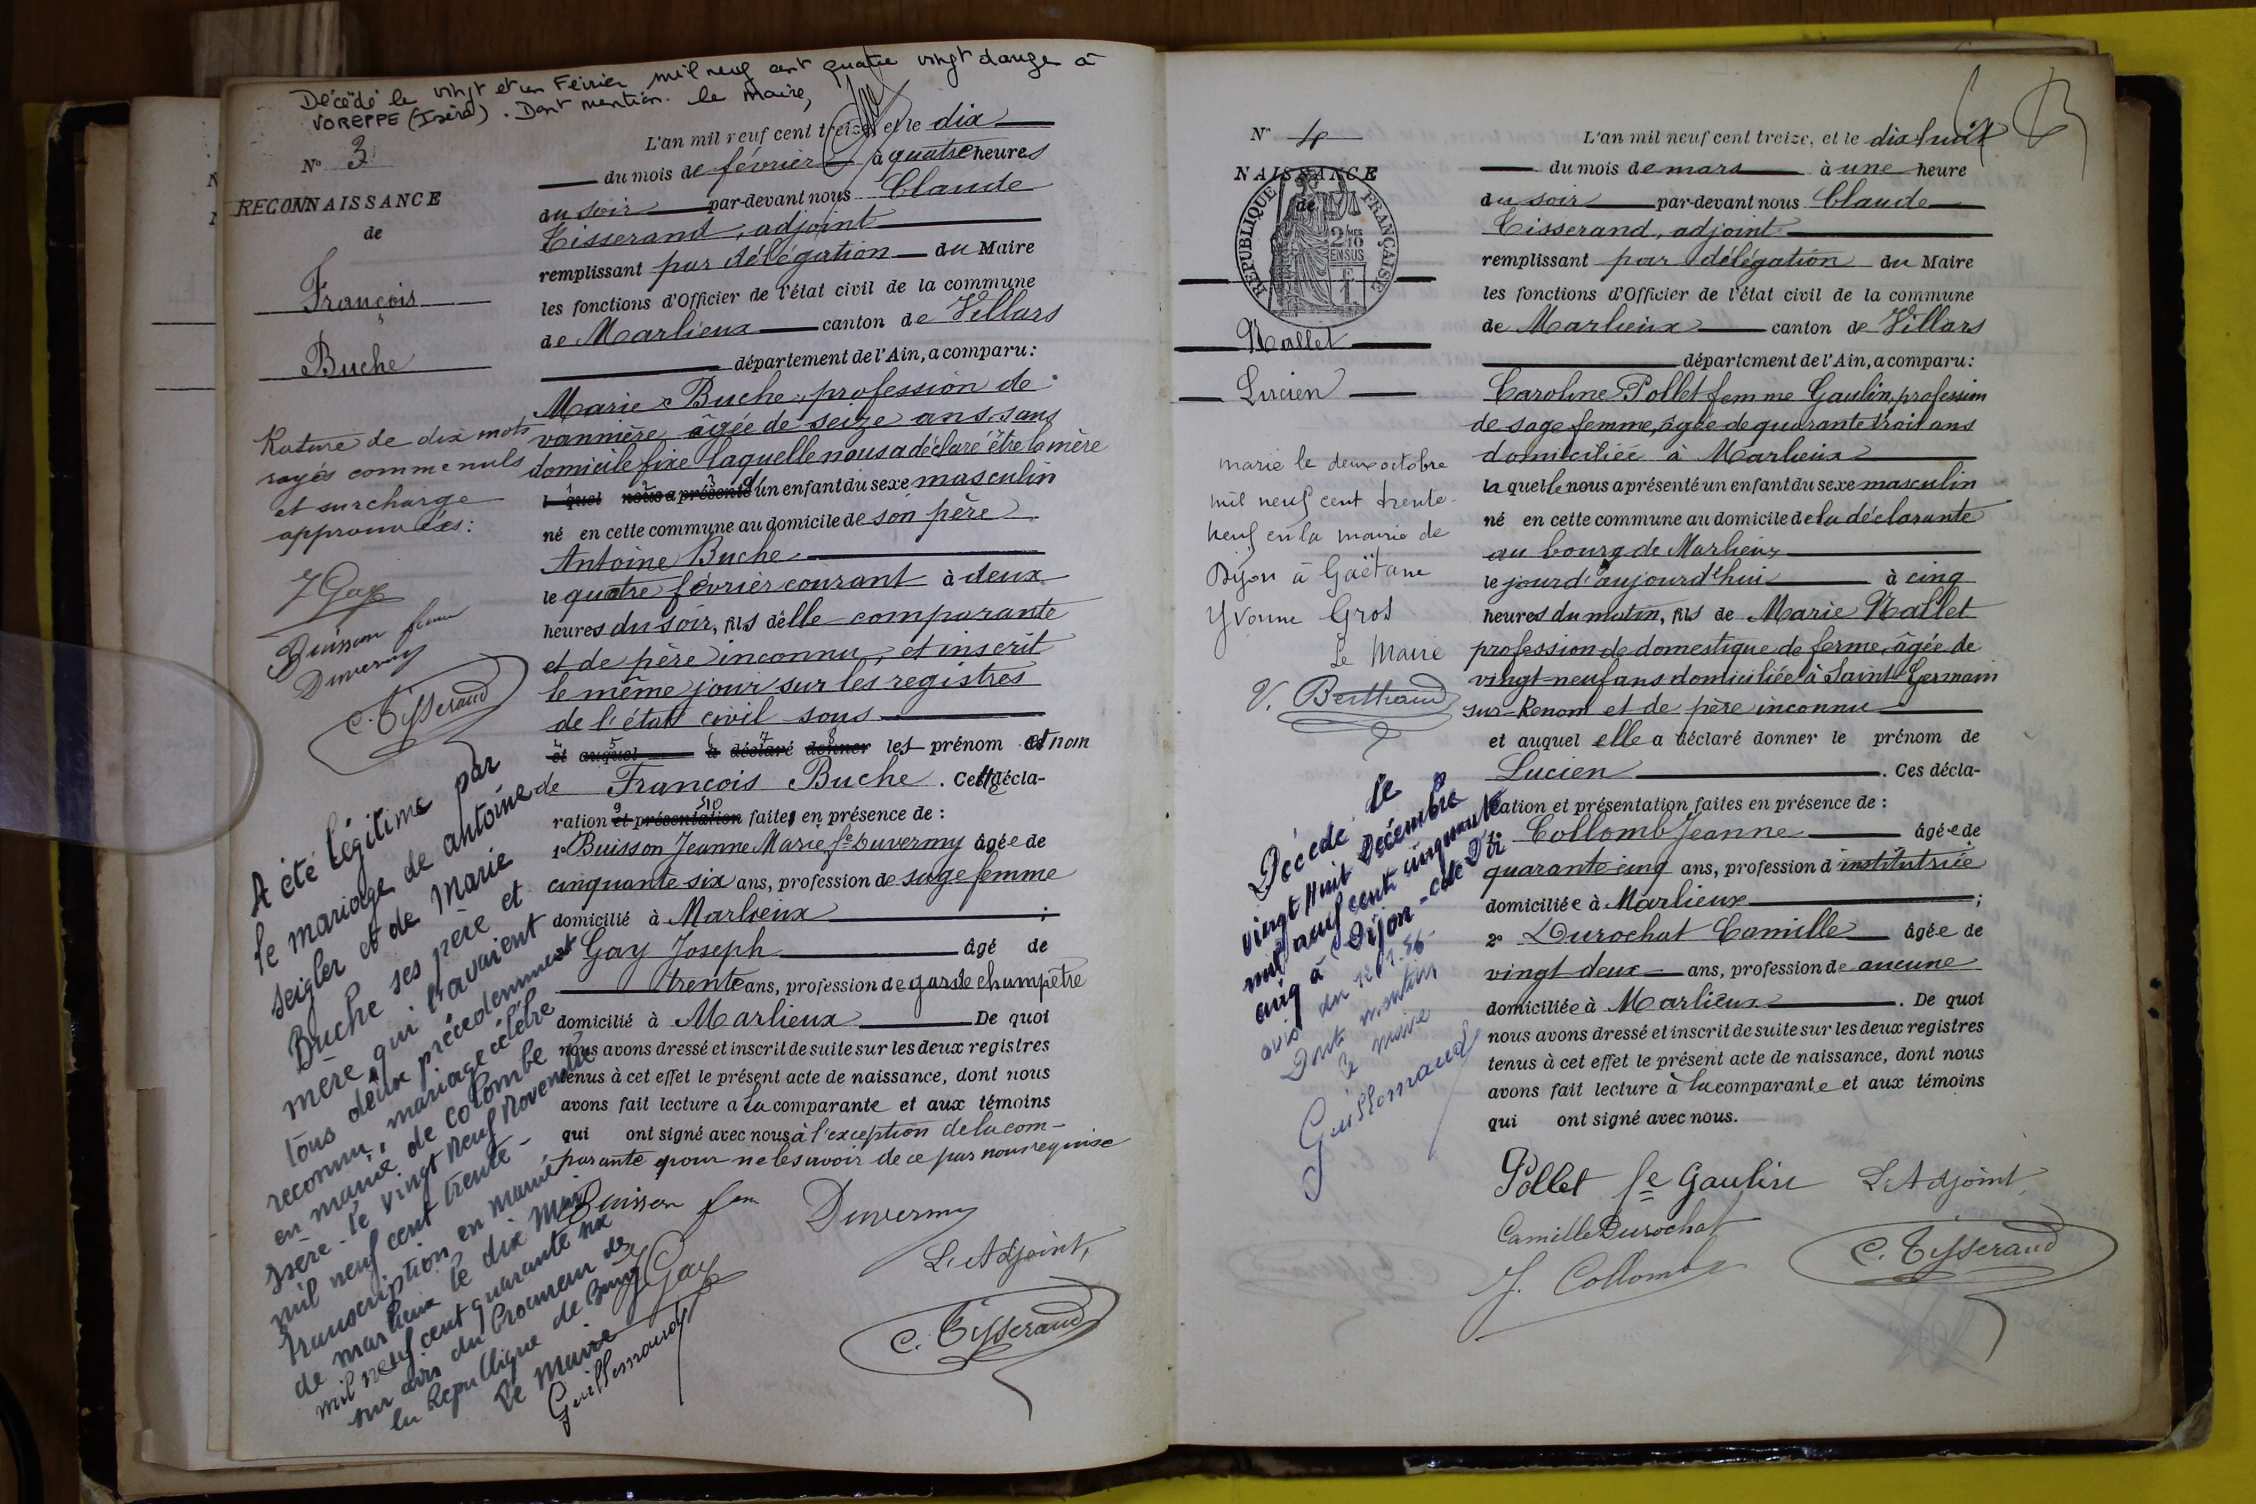 Décédé le vingt et un Février mil neuf cent quatre vingt douze à
VOREPPE (Isère). Dont mention. le Maire,
N° 3
RECONNAISSANCE
de
François
Buche
Rature de dix mots
rayés comme nuls
et surcharge
approuvées:
J Gay
Buisson feme
Duvermy
C. Tisserand
A été légitimé par
le mariage de antoine
Seigler et de Marie
Buche ses père et
mère qui l'avaient
tous deux précédemment
reconnu, mariage célébré
en mairie de Colombe
Isère - le vingt neuf Novembre
mil neuf cent trente -
Transcription en mairie
de Marlieux le dix Mai
mil neuf cent quarante six
sur avis du Procureur de
la République de Bourg
Le Maire
Guillemaud
L'an mil neuf cent treize, et le dix
du mois de février à quatre heures
du soir par-devant nous Claude
Tisserand, adjoint
remplissant par délégation du Maire
les fonctions d'Officier de l'état civil de la commune
de Marlieux canton de Villars
département de l'Ain, a comparu:
Marie Buche, profession de
vannière âgée de seize ans, sans
domicile fixe laquelle nous a déclaré être la mère
l quel nous a présenté d'un enfant du sexe masculin
né en cette commune au domicile de son père
Antoine Buche
le quatre février courant à deux
heures du soir, fils d'elle comparante
et de père inconnu, et inscrit
le même jour sur les registres
de l'état civil sous
et auquel a déclaré donner les prénom et nom
de François Buche. Cette décla-
ration et présentation faites en présence de :
1° Buisson Jeanne Marie fe Duvermy âgée de
cinquante six ans, profession de sage femme
domicilié à Marlieux ;
2° Gay Joseph âgé de
trente ans, profession de garde champêtre
domicilié à Marlieux De quoi
nous avons dressé et inscrit de suite sur les deux registres
tenus à cet effet le présent acte de naissance, dont nous
avons fait lecture a la comparante et aux témoins
qui ont signé avec nous à l'exception de la com-
parante pour ne le savoir de ce par nous requise
Buisson fem Duvermy
J Gay
L'Adjoint,
C. Tisserand
N° 4
NAISSANCE
de
RÉPUBLIQUE FRANÇAISE
2/10 MES
EN SUS
Nallet
Lucien
marié le deux octobre
mil neuf cent trente-
neuf en la mairie de
Dijon à Gaëtane
Yvonne Gros
Le Maire
V. Berthaud
Décédé le
vingt huit Décembre
mil neuf cent cinquante
cinq à Dijon - Côte d'Or
avis du 12.1.56-
Dont mention
le maire
Guillemaud
L'an mil neuf cent treize, et le dix huit
du mois de mars à une heure
du soir par-devant nous Claude
Tisserand, adjoint
remplissant par délégation du Maire
les fonctions d'Officier de l'état civil de la commune
de Marlieux canton de Villars
département de l'Ain, a comparu:
Caroline Pollet femme Gaulin, profession
de sage femme, âgée de quarante trois ans
domiciliée à Marlieux
laquelle nous a présenté un enfant du sexe masculin
né en cette commune au domicile de la déclarante
au bourg de Marlieux
le jour d'aujourd'hui à cinq
heures du matin, fils de Marie Nallet
profession de domestique de ferme, âgée de
vingt-neuf ans domiciliée à Saint Germain
sur-Renom et de père inconnu
et auquel elle a déclaré donner le prénom de
Lucien. Ces décla-
ration et présentation faites en présence de :
Collomb Jeanne âgée de
quarante cinq ans, profession d'institutrice
domiciliée à Marlieux ;
2° Durochat Camille âgée de
vingt deux ans, profession de aucune
domiciliée à Marlieux. De quoi
nous avons dressé et inscrit de suite sur les deux registres
tenus à cet effet le présent acte de naissance, dont nous
avons fait lecture à la comparante et aux témoins
qui ont signé avec nous.
Pollet fe Gaulin L'Adjoint,
Camille Durochat
J. Collomb
C. Tisserand